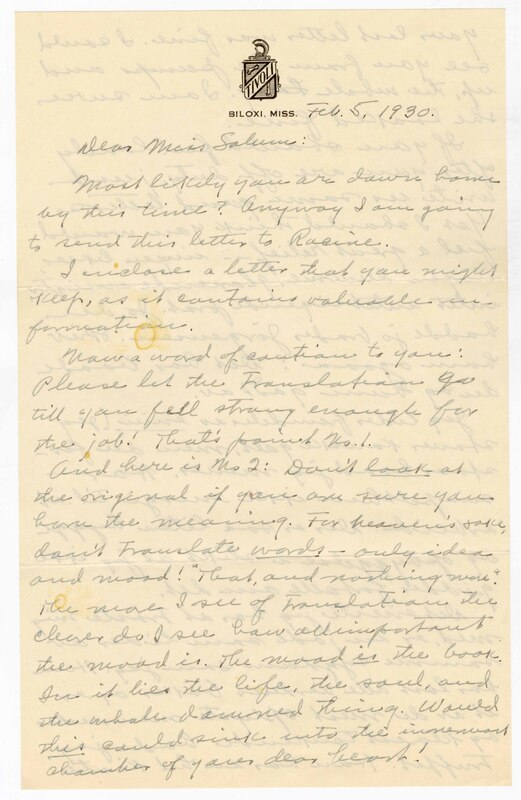 TIVOLI
BILOXI, MISS. Feb. 5, 1930.
Dear Miss Solum:
Most likely you are down home
by this time? Anyway I am going
to send this letter to Racine.
I enclose a letter that you might
keep, as it contains valuable in-
formation.
Now a word of caution to you:
Please let the Translation go
till you fell strong enough for
the job! That's point No. 1.
And here is No 2: Don't look at
the original if you are sure you
have the meaning. For heaven's sake,
don't Translate words — only idea
and mood! "That, and nothing more".
The more I see of Translation the
clearer do I see how allimportant
the mood is. The mood is the book.
In it lies the life, the soul, and
the whole damned thing. Would
this could sink into the innermost
chamber of your dear heart!